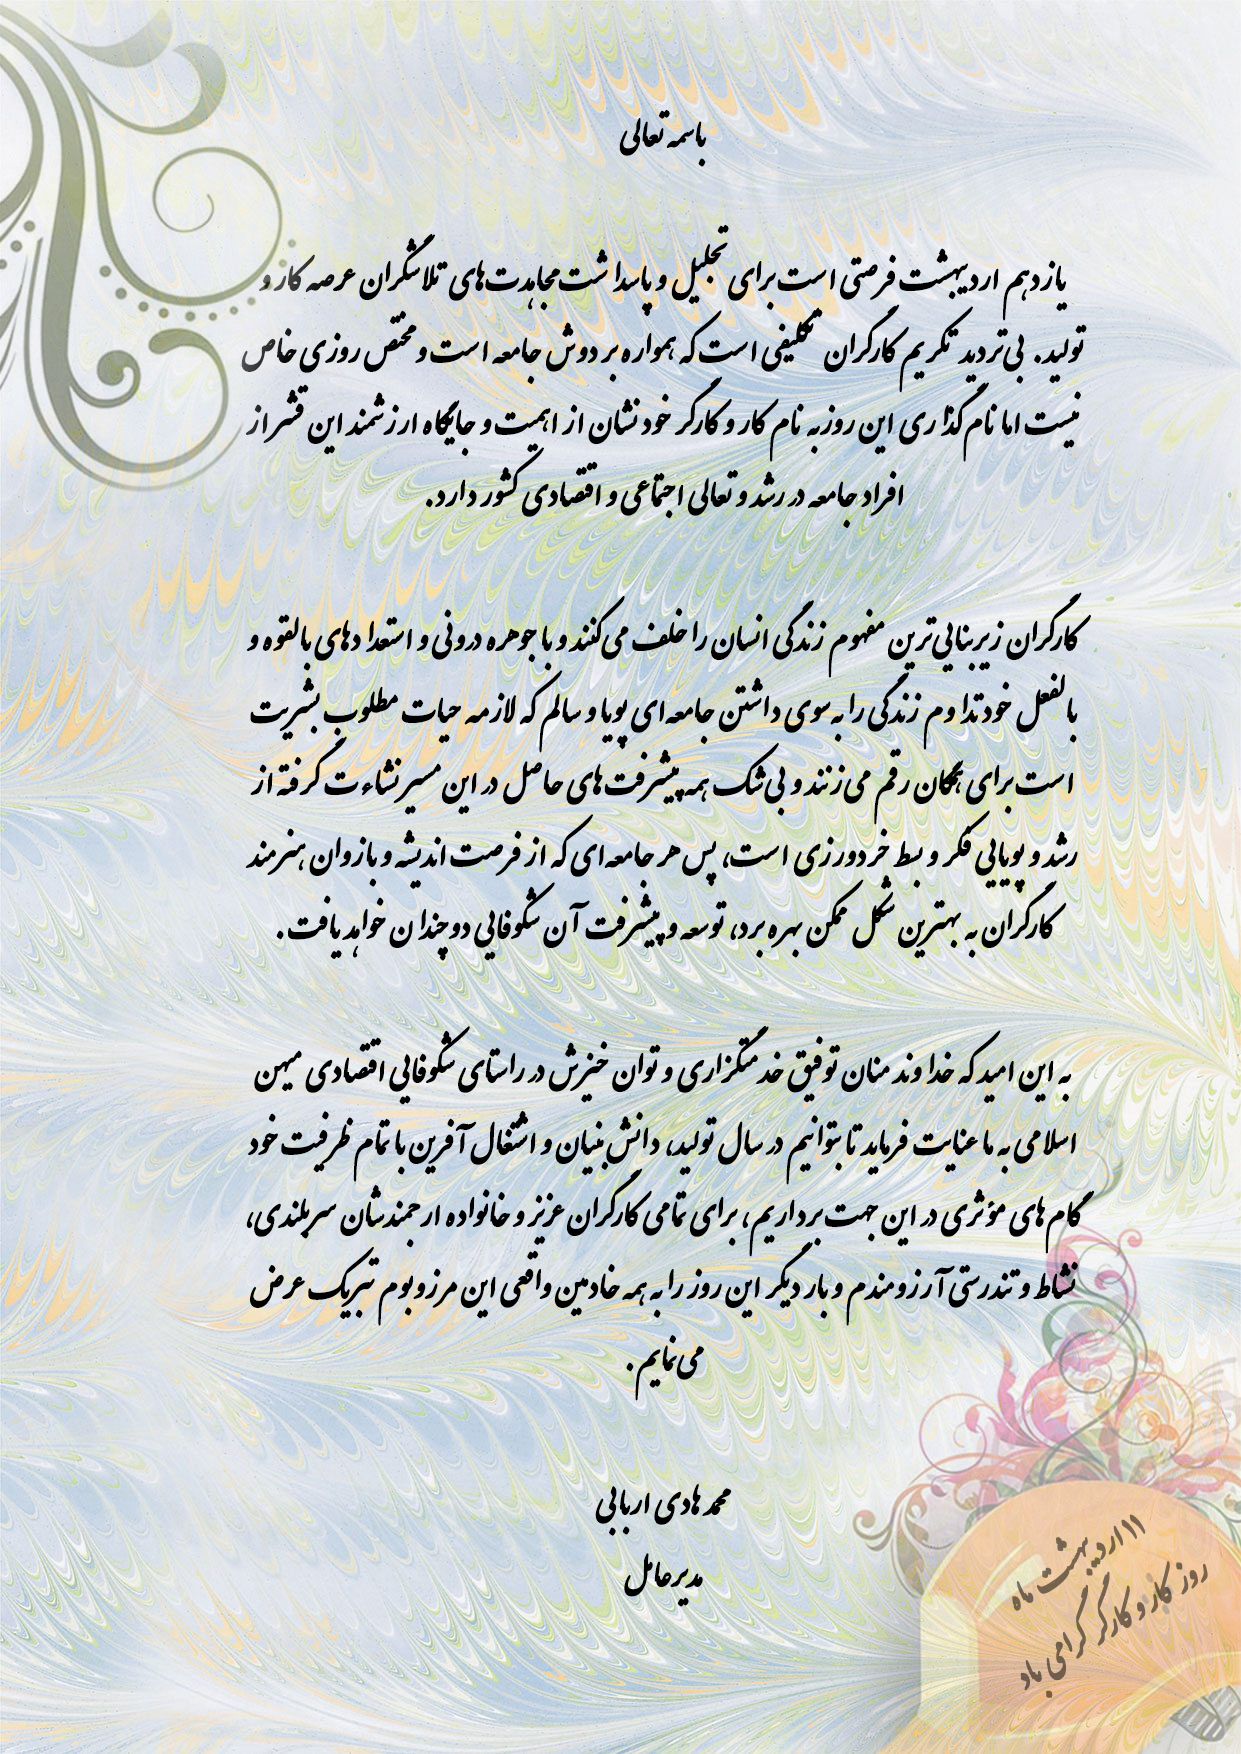 باسمه تعالی
یازدهم اردیبهشت فرصتی است برای تجلیل و پاسداشت مجاهدت‌های تلاشگران عرصه کار و
تولید. بی‌تردید تکریم کارگران تکلیفی است که همواره بر دوش جامعه است و مختص روزی خاص
نیست اما نام‌گذاری این روز به نام کار و کارگر خود نشان از اهمیت و جایگاه ارزشمند این قشر از
افراد جامعه در رشد و تعالی اجتماعی و اقتصادی کشور دارد.
کارگران زیربنایی‌ترین مفهوم زندگی انسان را خلف می‌کنند و با جوهره درونی و استعدادهای بالقوه و
بالفعل خود تداوم زندگی را به سوی داشتن جامعه‌ای پویا و سالم که لازمه حیات مطلوب بشریت
است برای همگان رقم می‌زنند و بی‌شک همه پیشرفت‌های حاصل در این مسیر نشاءت گرفته از
رشد و پویایی فکر و بسط خردورزی است، پس هر جامعه‌ای که از فرصت اندیشه و بازوان هنرمند
کارگران به بهترین شکل ممکن بهره برد، توسعه و پیشرفت آن شکوفایی دوچندان خواهد یافت.
به این امید که خداوند منان توفیق خدمتگزاری و توان خیزش در راستای شکوفایی اقتصادی میهن
اسلامی به ما عنایت فرماید تا بتوانیم در سال تولید، دانش‌بنیان و اشتغال آفرین با تمام ظرفیت خود
گام‌های مؤثری در این جهت برداریم، برای تمامی کارگران عزیز و خانواده ارجمندشان سربلندی،
نشاط و تندرستی آرزومندم و بار دیگر این روز را به همه خادمین واقعی این مرز و بوم تبریک عرض
می‌نمایم.
محمدهادی اربابی
مدیرعامل
۱۱ اردیبهشت ماه
روز کار و کارگر گرامی باد